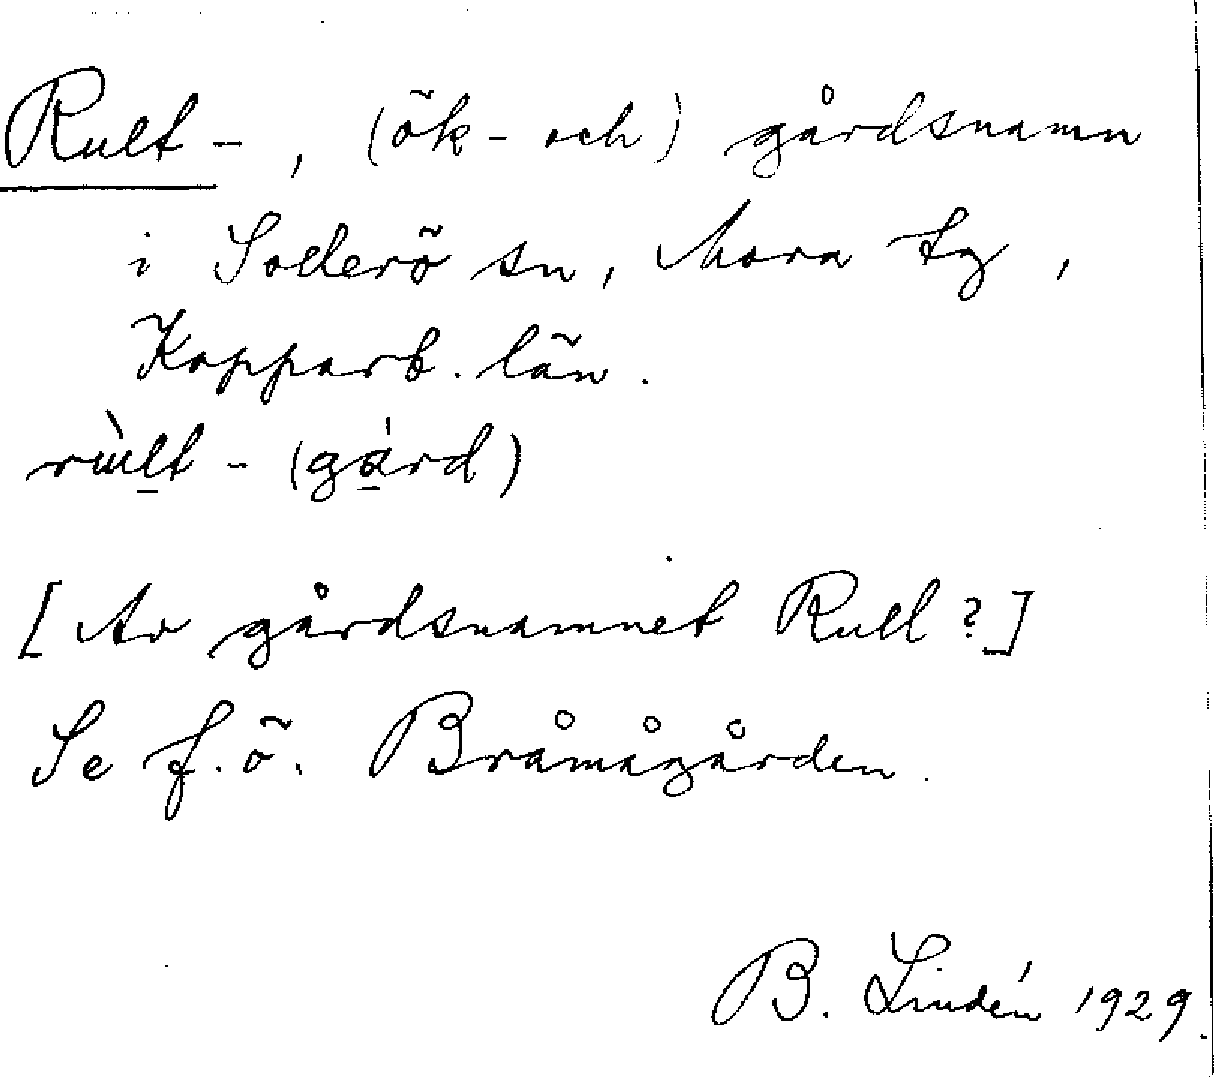 Rult-, (ök- och) gårdsnamn
i Sollerö sn, Mora tg,
Kopparb. län.
rùlt - (gárd)
[Av gårdsnamnet Rull?]
Se f.ö. Bråmågården.
B. Lindén 1929.